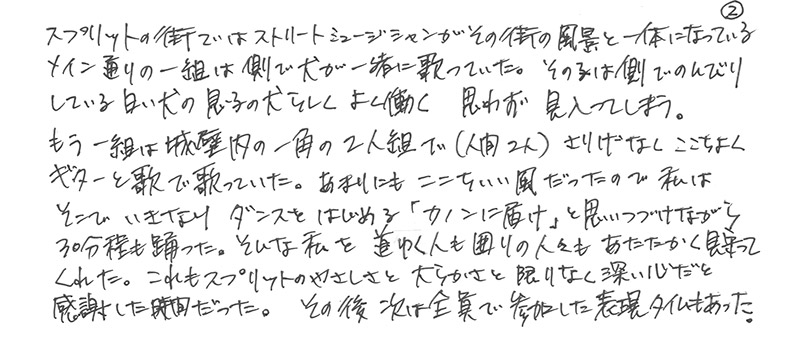 ②
スプリットの街ではストリートミュージシャンがその街の風景と一体になっている
メイン通りの一組は側で犬が一緒に歌っていた。その子は側でのんびり
している白い犬の息子の犬らしく よく働く 思わず 見入ってしまう。
もう一組は城壁内の一角の2人組で(人間2人) さりげなく ここちよく
ギターと歌で歌っていた。あまりにもここちいい風だったので私は
そこで いきなり ダンスを はじめる「カノンに届け」と思いつづけながら
30分程も踊った。そんな私を 道ゆく人も 周りの人々も あたたかく 見守って
くれた。これもスプリットのやさしさと 大らかさと 限りなく 深い心だと
感謝した時間だった。 その後 次は全員で 参加した 表現タイムもあった。